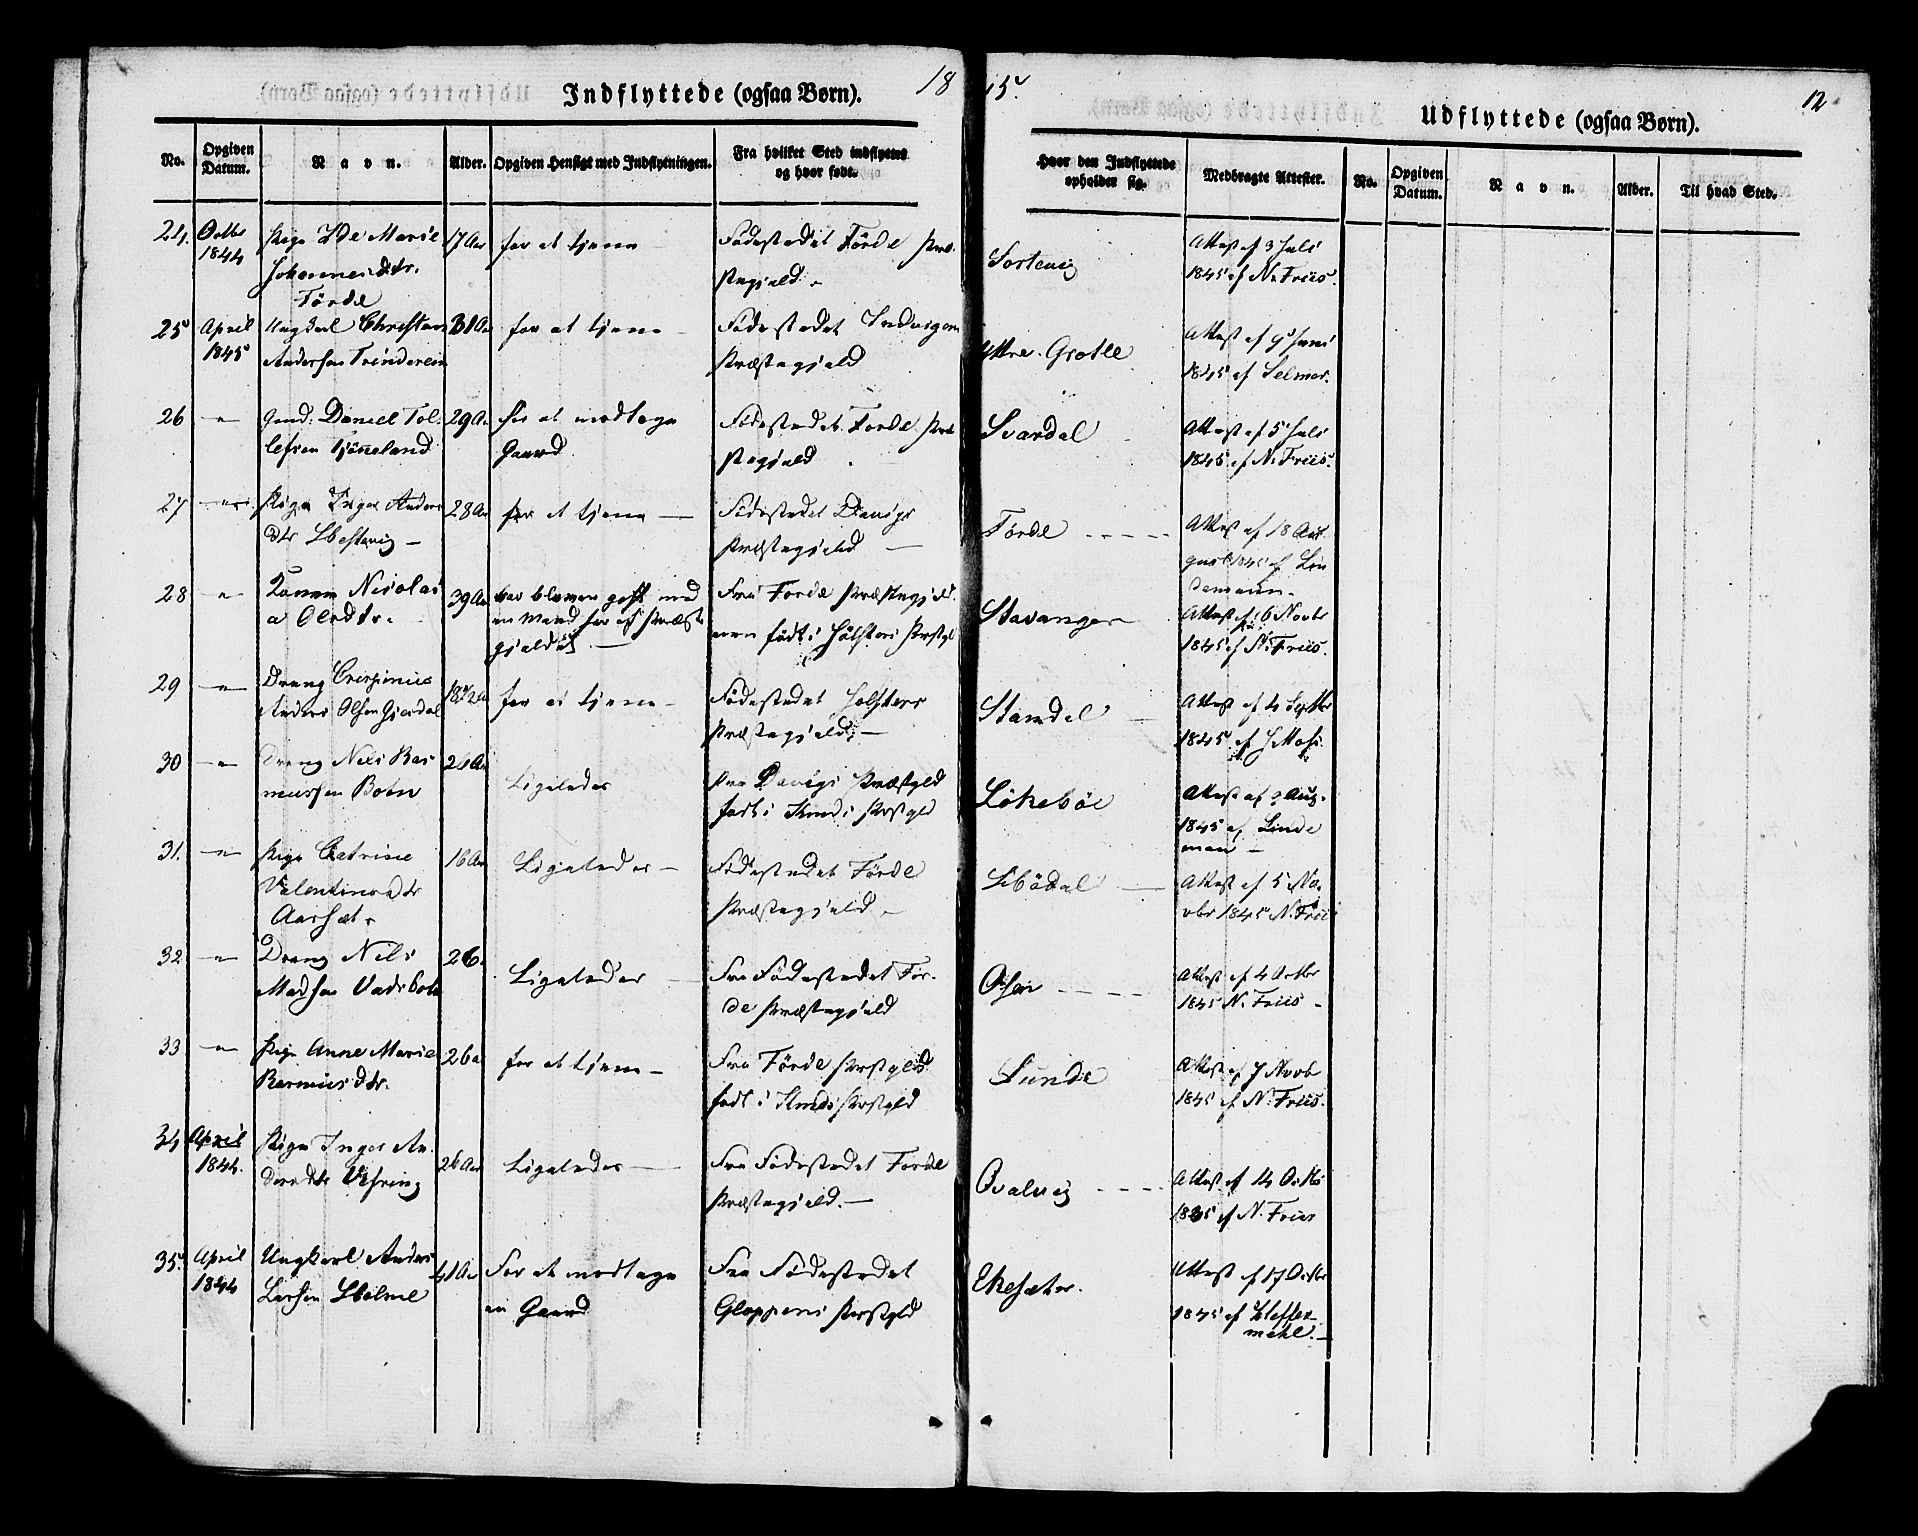 Indflyttede (ogsaa Børn).
18
45.
Udflyttede (ogsaa Børn).
12
No. Opgiven Datum. Navn. Alder. Opgiven Hensigt med Indflytningen. Fra hvilket Sted indflyttet og hvor født. Hvor den Indflyttede opholder sig. Medbragte Attester. No. Opgiven Datum. Navn. Alder. Til hvad Sted.
24. Octbr 1844 Pige Ide Marie Johannesdtr. Förde 17 Aar for at tjene Födestedet Förde Præstegjeld. Sortevig Attest af 3 Juli 1845 af N. Friis.
25 April 1845 Ungkarl Christen Andersen 31 Aar for at tjene Födestedet Indvigens Præstegjeld Yttre Grotle Attest af 9 Juni 1845 af Selmer.
26 — Gmd. Daniel Tollefsen Tjöneland 29 Aar for at modtage Gaard Födestedet Förde Præstegjeld Svardal Attest af 5 Juli 1845 af N. Friis.
27 — Pige Inger Andersdtr 28 Aar for at tjene — Födestedet Davigs Præstegjeld — Förde Attest af 18 August 1845 af Lindemann.
28 — Nicolaia Olesdtr. 39 Aar har bleven gift med en Mand her af Præstegjeldet — Fra Förde Præstegjeld men födt i Jölsters Prstgl Stavanger Attest af 6 Novbr 1845 af N. Friis.
29 — Dreng Crispinius Anders Olsen Gjerdal 18 1/2 Aar for at tjene — Födestedet Jölsters Præstegjeld — Standal — Attest af 4 Septbr 1845 af
30 — Dreng Nils Rasmussen Botn Aar Ligeledes Fra Davigs Præstgld födt i Kinds Prstgld Lökeböe Attest af 2 Aug. 1845 af Lindeman —
31. — Pige Catrine Valentinsdtr Aarsæt. 16 Aar Ligeledes — Födestedet Förde Præstegjeld — Attest af 5 Novbr 1845 N. Friis
32 — Dreng Nils Madsen Vadsbotn 26. Ligeledes — Fra Födestedet Förde Præstegjeld Osen Attest af 4 Octbr 1845 N. Friis —
33 — Pige Anne Marie Rasmusdtr. 26 a for at tjene — Fra Förde Prstgld födt i Kinds Prstgld Sunde Attest af 7 Novb 1845 af N. Friis.
34 April 1844. Pige Inger Andersdtr Vefring 26 Aar Ligeledes — Fra Födestedet Förde Præstegjeld. — Qvalvig Attest af 14 Octbr 1845 af N. Friis
35. April 1844 Ungkarl Anders Larsen 41 Aar For at modtage en Gaard Fra Födestedet Gloppens Prstgld Ekesæter. Attest af 17 Octbr 1845 af Kleffermehl. —